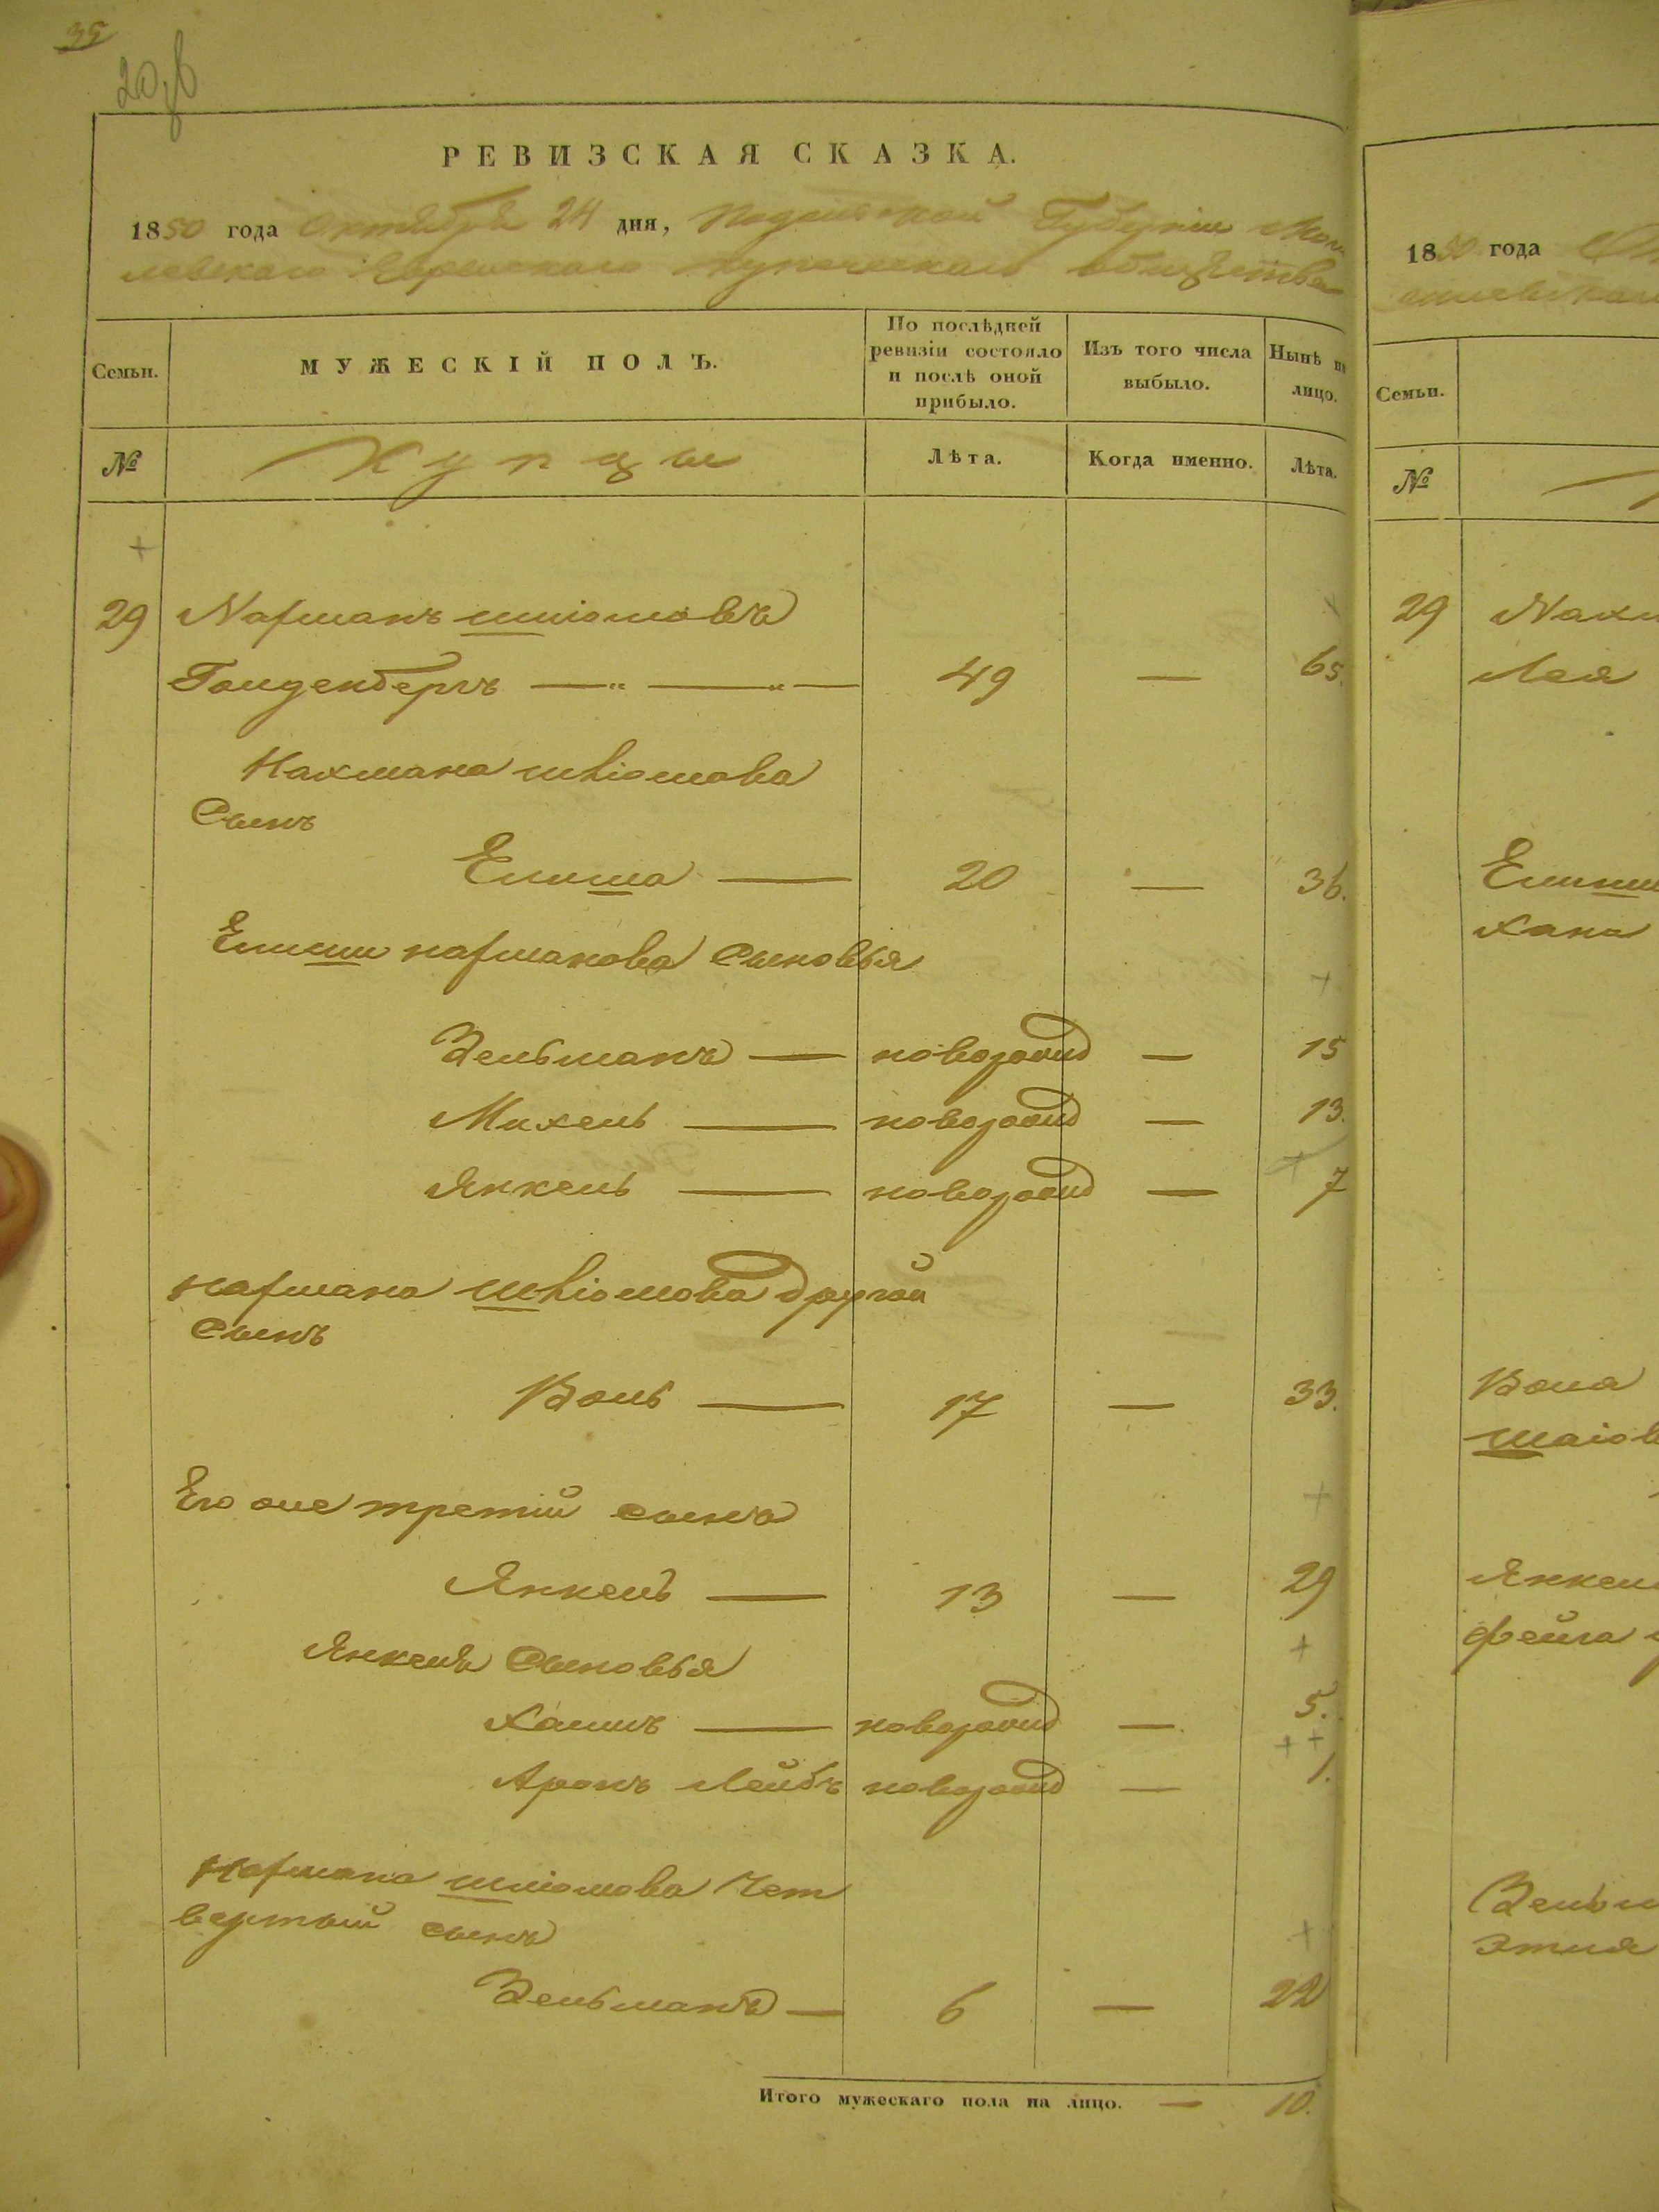 35
20
РЕВИЗСКАЯ СКАЗКА.
1850 года Октября 24 дня, Подольской Губерніи Моги
левскаго Еврейскаго купеческаго общества
Семьи.
МУЖЕСКІЙ ПОЛЪ.
По послѣдней ревизіи состояло и послѣ оной прибыло.
Изъ того числа выбыло.
Нынѣ на лицо.
№
Купцы
Лѣта.
Когда именно.
Лѣта.
29 Нахманъ Шліомовъ
Гольденбергъ — 49 — 65.
Нахмана Шліомова
Сынъ
Елиша — 20 — 36.
Елиши Нахманова Сыновья
Зельманъ — новорожд — 15
Михель — новорожд — 13.
Янкель — новорожд — 7
Нахмана Шліомова другой
Сынъ
Волъ — 17 — 33.
Его же третій сынъ
Янкель — 13 — 29
Янкеля Сыновья
Хаимъ — новорожд — 5.
Аронъ Лейбъ новорожд — 1.
Нахмана Шліомова Чет
вертый сынъ
Зельманъ — 6 — 22
Итого мужескаго пола на лицо. — 10.
1850 года
Семьи.
№
29
Лея
Хана
Вола
Фейга
Этля